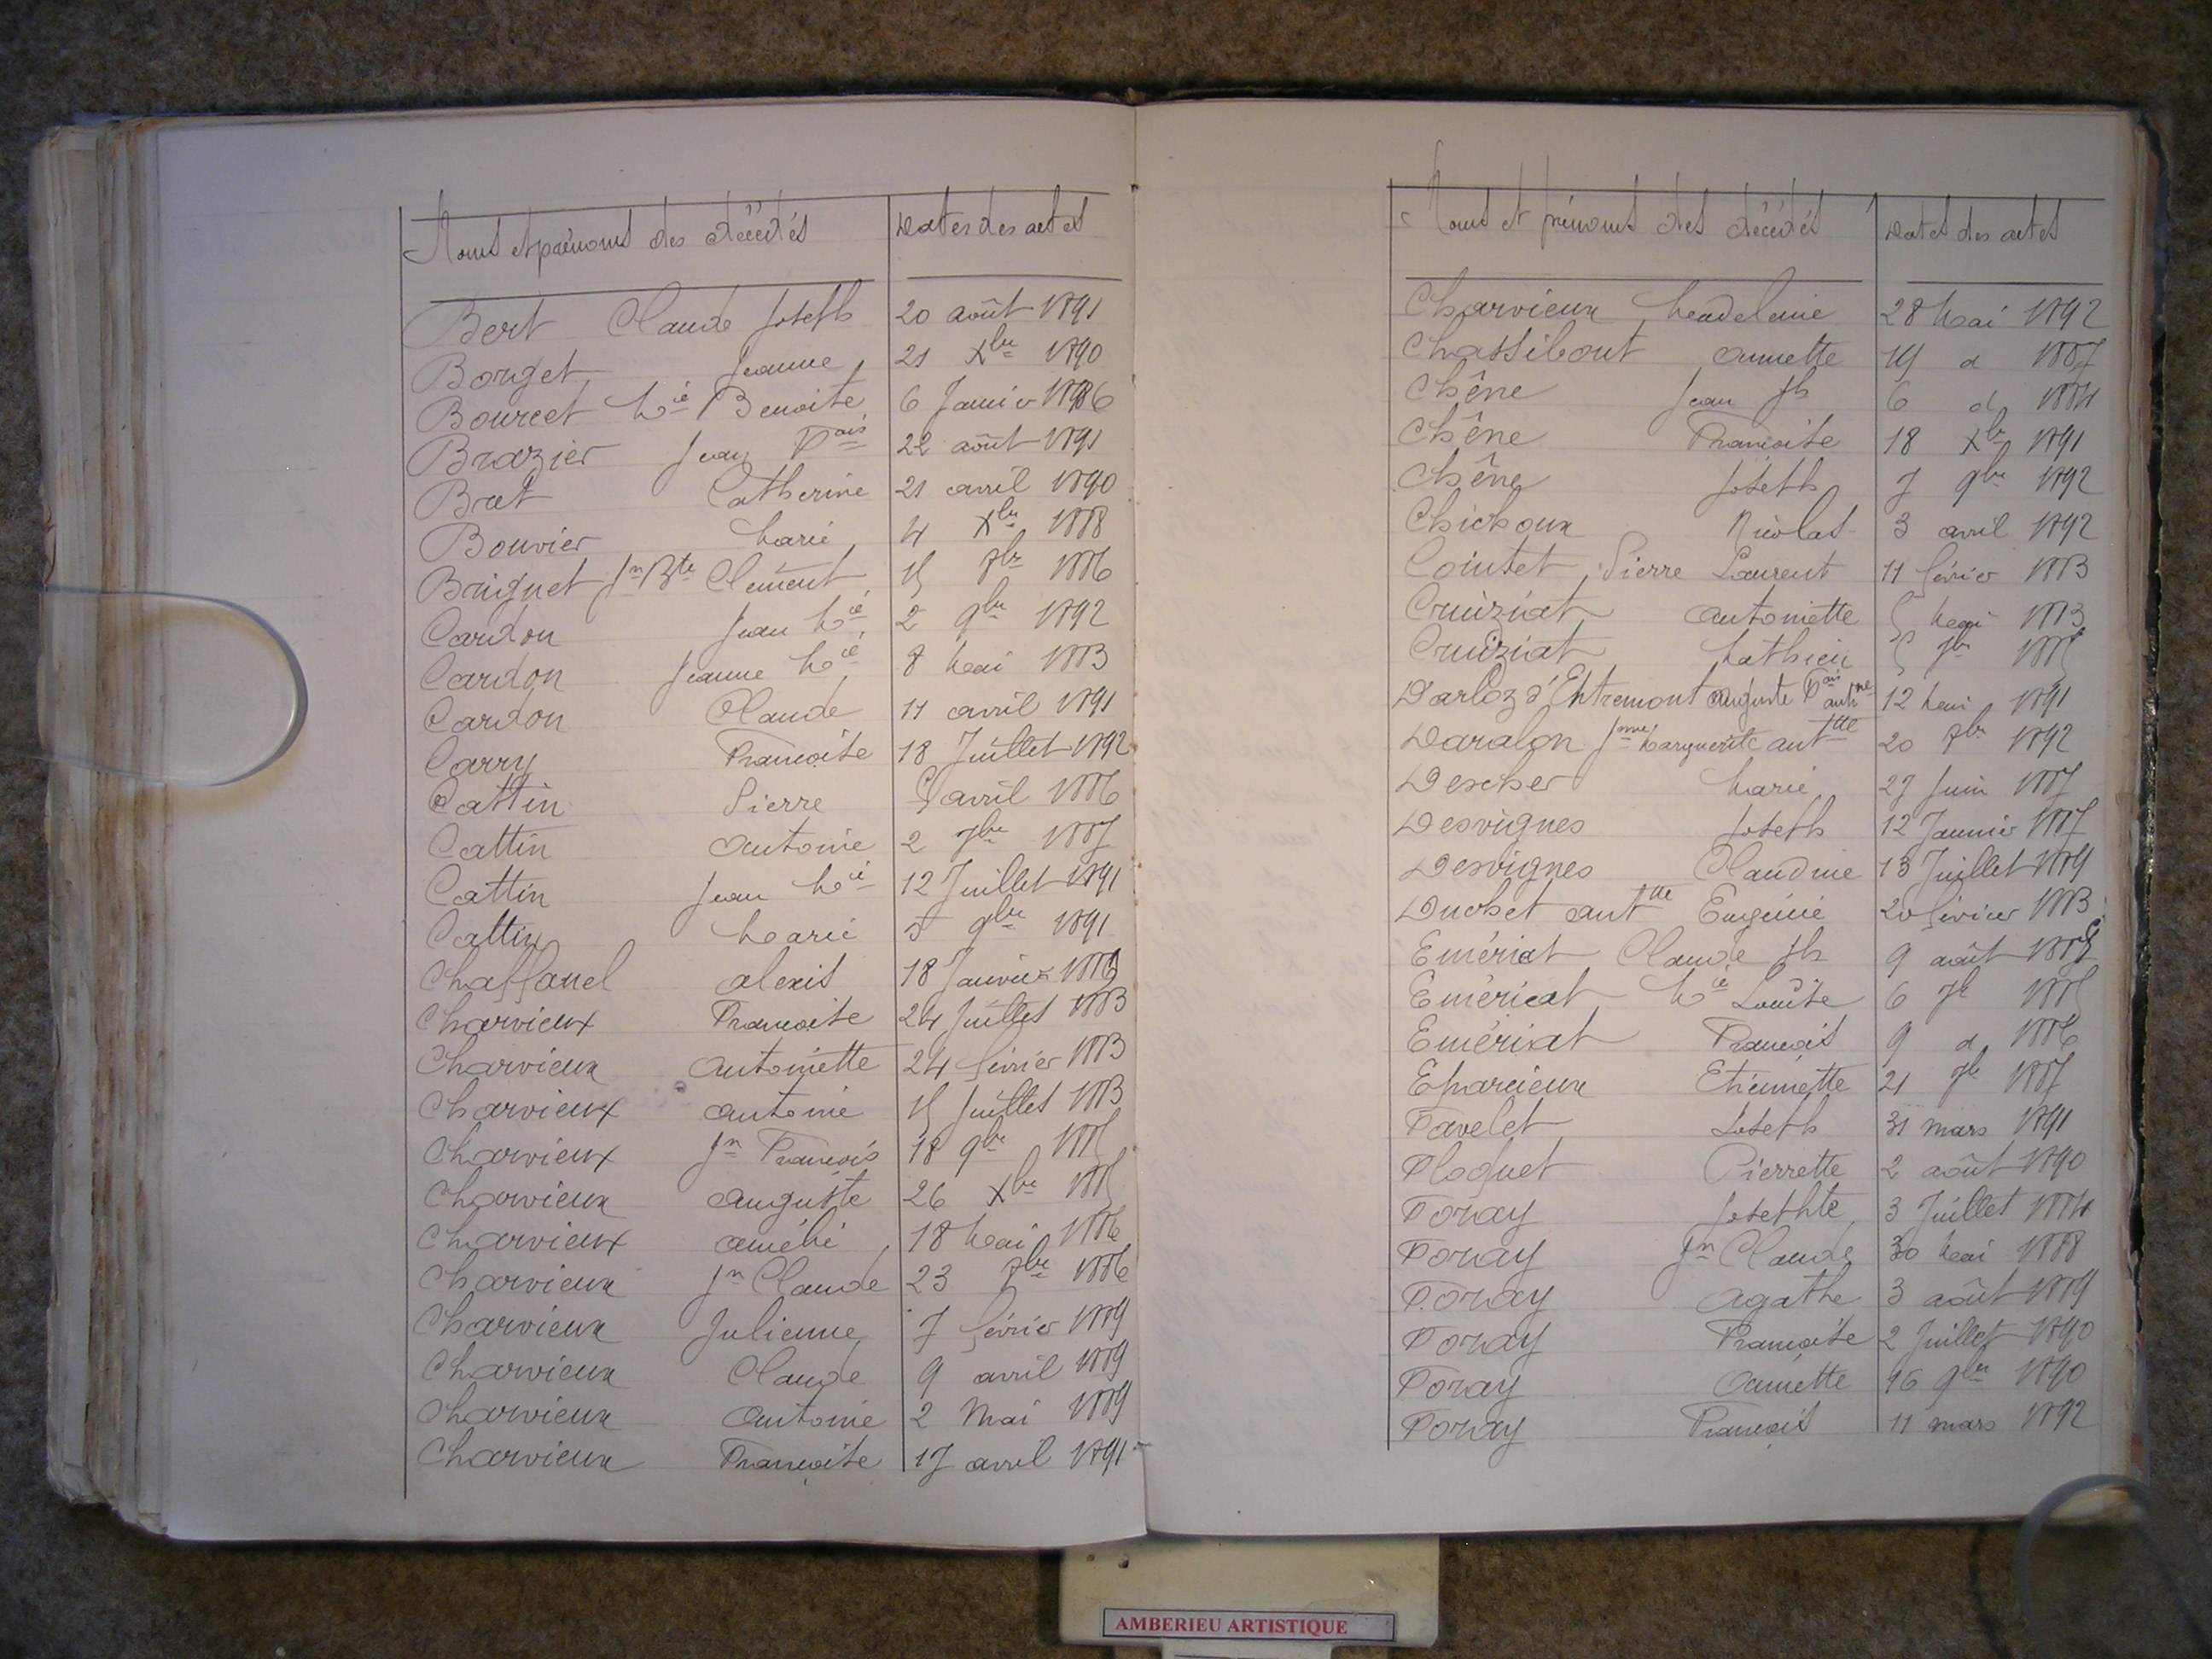 Noms et prénoms des décédés Dates des actes
Bert Claude Joseph 20 août 1891
Borget Jeanne 21 Xbre 1890
Bourcet Mie Benoite 6 Janvier 1886
Brazier Jean Fçais 22 août 1891
Bret Catherine 21 avril 1890
Bouvier Marie 4 Xbre 1888
Briguet Jn Bte Clément 15 8bre 1886
Cardon Jean Mie 2 9bre 1892
Cardon Jeanne Mie 8 Mai 1883
Cardon Claude 11 avril 1891
Carry Françoise 18 Juillet 1892
Cattin Pierre 9 avril 1886
Cattin Antoine 2 7bre 1887
Cattin Jean Mie 12 Juillet 1891
Cattin Marie 5 9bre 1891
Chaffanel Alexis 18 Janvier
Charvieux Françoise 24 Juillet 1883
Charvieux Antoinette 24 février 1883
Charvieux Antoine 15 Juillet 1883
Charvieux Jn François 18 9bre 1885
Charvieux Auguste 26 Xbre 1885
Charvieux Amélie 18 Mai 1886
Charvieux Jn Claude 23 8bre 1886
Charvieux Julienne 7 février 1889
Charvieux Claude 9 avril 1889
Charvieux Antoine 2 Mai 1889
Charvieux Françoise 17 avril 1891
Noms et prénoms des décédés Dates des actes
Charvieux Madeleine 28 Mai 1892
Chassibout Annette 19 d 1887
Chêne Jean Jh 6 d 1884
Chêne Françoise 18 Xbre 1891
Chêne Joseph 7 9bre 1892
Chichoux Nicolas 3 avril 1892
Cointet Pierre Laurent 11 février 1883
Cruiziat Antoinette 5 Mai 1883
Cruiziat Mathieu 5 7bre 1885
Darloz d'Entremont Auguste Fçais Antne 12 Mai 1891
Daralon Jnne Marguerite Anttte 20 8bre 1892
Descher Marie 27 Juin 1887
Desvignes Joseph 12 Janvier 1887
Desvignes Claudine 13 Juillet 1889
Duchet Anttte Eugénie 20 février 1883
Emériat Claude Jh 9 août
Emériat Mie Louise 6 7bre 1885
Emériat François 9 d 1886
Eparcieux Etiennette 21 7bre 1887
Favelet Joseph 31 mars 1891
Floquet Pierrette 2 août 1890
Foray Josephte 3 Juillet 1884
Foray Jn Claude 30 Mai 1888
Foray Agathe 3 août 1889
Foray Françoise 2 Juillet 1890
Foray Annette 16 9bre 1890
Foray François 11 mars 1892
AMBERIEU ARTISTIQUE